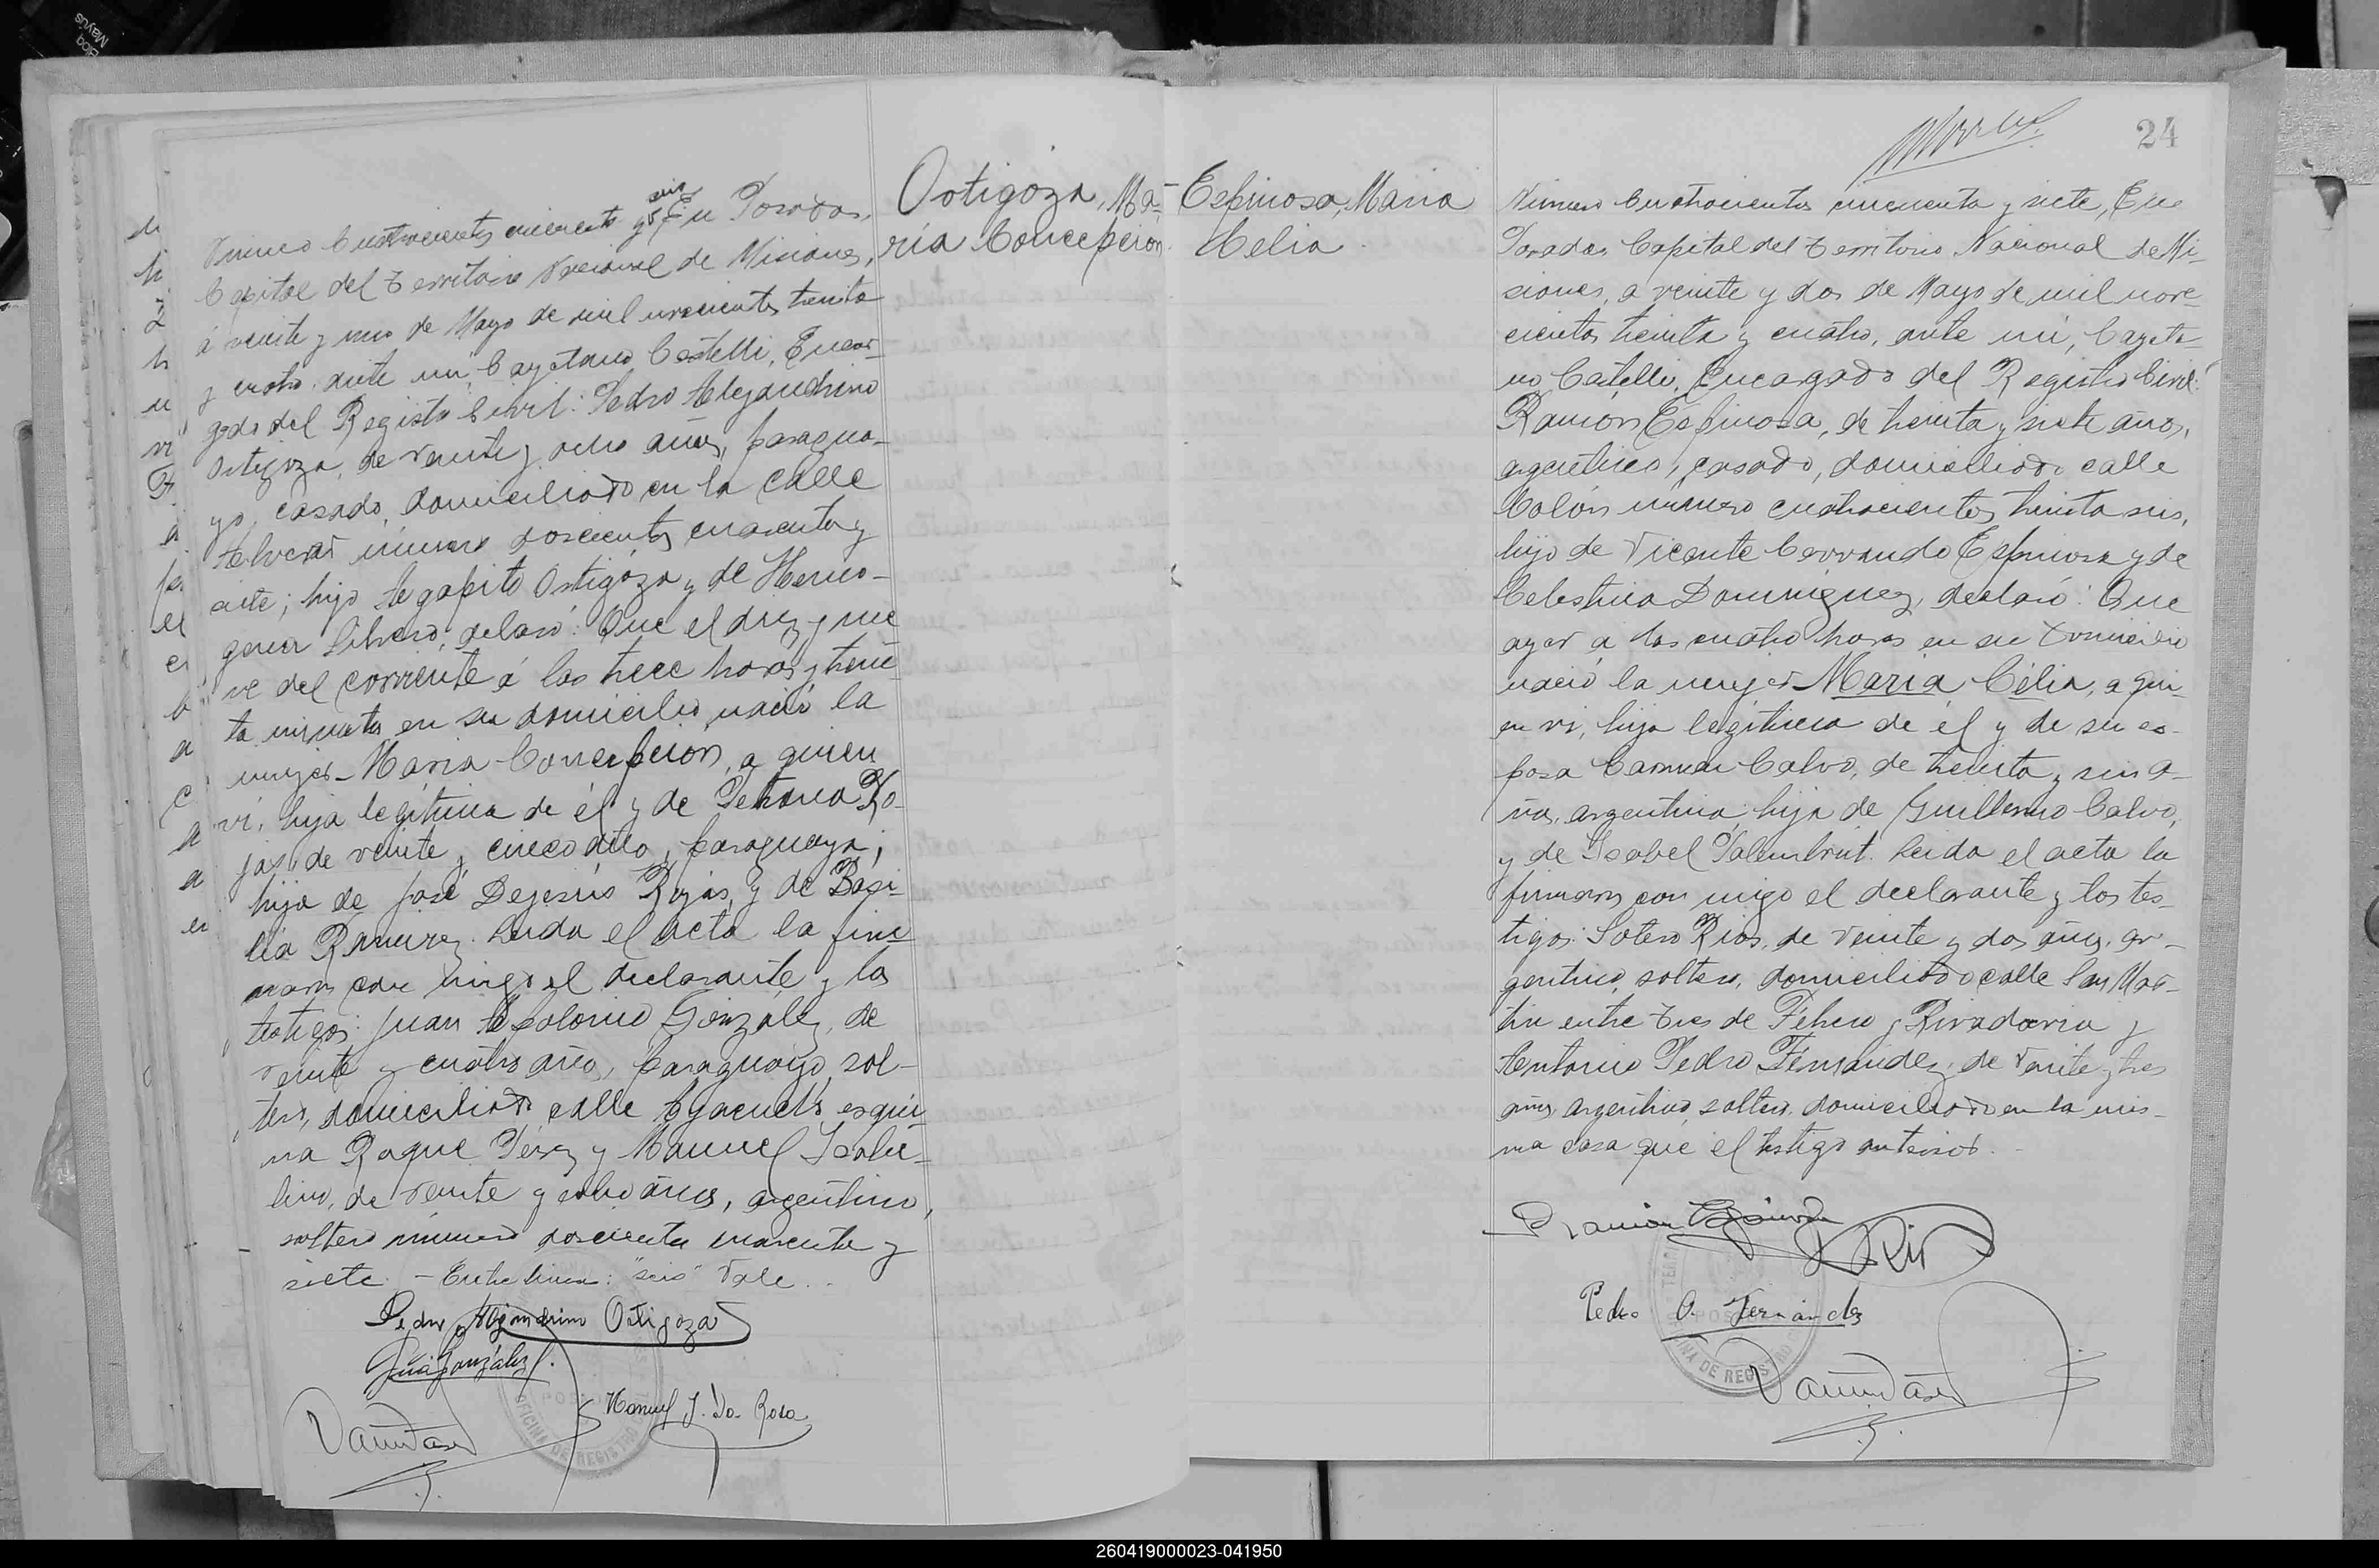 Ortigoza, Ma-
ría Concepcion.
seis
Número Cuatrocientos cincuenta y En Posadas,
Capital del Territorio Nacional de Misiones,
á veinte y uno de Mayo de mil novecientos treinta
y cuatro, ante mí, Cayetano Castelli, Encar-
gado del Registro Civil: Pedro Alejandrino
Ortigoza, de veinte y ocho años, paragua-
yo, casado, domiciliado en la calle
Alvear número doscientos cuarenta y
siete; hijo Agapito Ortigoza y de Hermo-
gena declaró: Que el diez y nue
ve del corriente á las trece horas y trein
ta minutos en su domicilio nació la
mujer-Maria Concepcion, a quien
vi, hija legitima de él y de Petrona Ro-
jas, de veinte y cinco años, paraguaya;
hija de José Dejesús Rojas, y de Basi-
lia Ramirez. Leida el acta la firm
maron con migo el declarante y los
testigos: Juan Apolonio González, de
veinte y cuatro años, paraguayo, sol-
tero, domiciliado calle Ayacucho esqui-
na Roque Pérez y Manuel
de veinte y ocho años, argentino,
soltero número doscientos cuarenta y
siete. - Entre linea: "seis" Vale..
Pedro Alejandrino Ortigoza
González
Manuel J. Da Rosa
OFICINA DE REGISTRO
24
Espinosa, Maria
Celia.
Número Cuatrocientos cincuenta y siete, En
Posadas, Capital del Territorio Nacional de Mi-
siones, a veinte y dos de Mayo de mil nove-
cientos treinta y cuatro, ante mí, Cayeta-
no Castelli, Encargado del Registro Civil:
Ramon Espinosa, de treinta y siete años,
argentino, casado, domiciliado calle
Colón número cuatrocientos treinta seis,
hijo de Vicente Espinosa y de
Celestina Dominguez, declaró: Que
ayer á las cuatro horas en su domicilio
nació la mujer-Maria Celia, a qui-
en vi, hija legitima de él y de su es-
posa Carmen Calvo, de treinta y seis a-
ños, argentina hija de Guillermo Calvo,
y de Isabel Leida el acta la
firmaron con migo el declarante y los tes-
tigos: Sotero Rios, de veinte y dos años, ar-
gentino, soltero, domiciliado calle San Mar-
tin entre Tres de Febrero y Rivadavia y
Antonio Pedro Fernandez, de veinte y tres
años, argentino, soltero, domiciliado en la mis-
ma casa que el testigo anterior.
Ramon Espinosa
Rios
Pedro A. Fernández
OFICINA DE REGISTRO
260419000023-041950